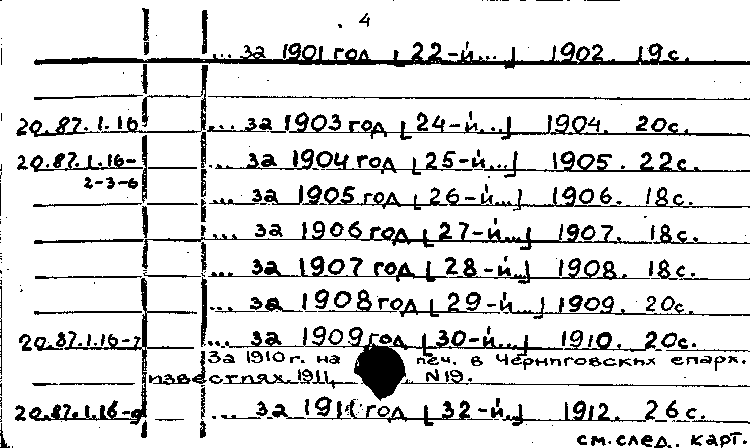 . 4
... за 1901 год [22-й...] 1902. 19 с.
20.87.1.16 ... за 1903 год [24-й...] 1904. 20 с.
20.87.1.16- ... за 1904 год [25-й...] 1905. 22 с.
2-3-6
... за 1905 год [26-й...] 1906. 18 с.
... за 1906 год [27-й...] 1907. 18 с.
... за 1907 год [28-й...] 1908. 18 с.
... за 1908 год [29-й...] 1909. 20 с.
20.87.1.16-7 ... за 1909 год [30-й...] 1910. 20 с.
За 1910 г. на печ. в Черниговских епарх.
известиях. 1911, N19.
20.87.1.16-9 ... за 1911 год [32-й...] 1912. 26 с.
см. след. карт.